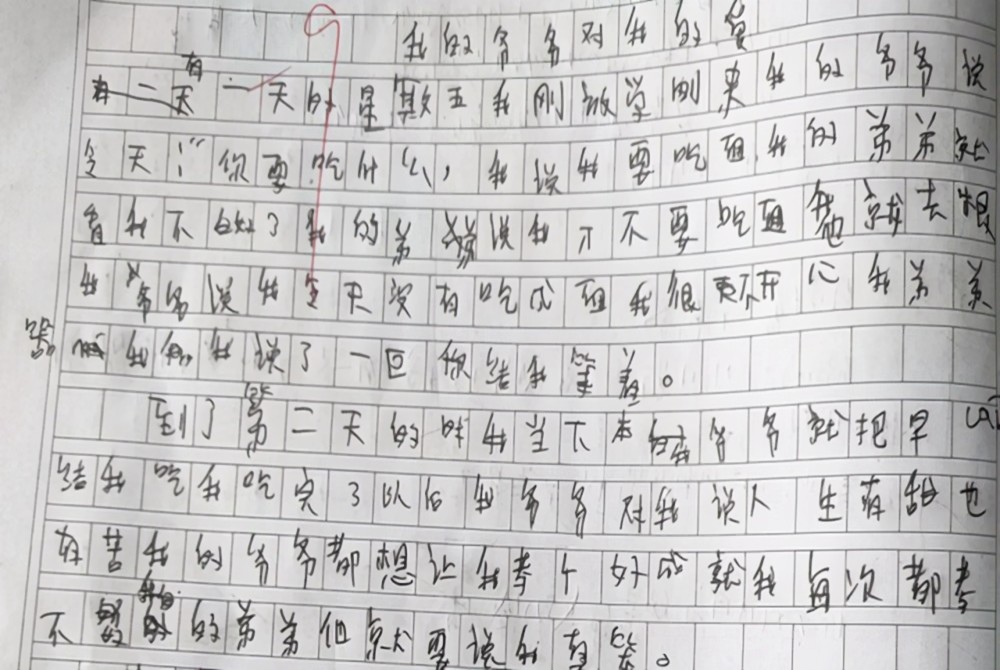 我的爷爷对我的爱
有一天的星期五我刚放学刚来我的爷爷说
今天:“你要吃什么,我说我要吃面,我的弟弟就
看我不的了我的弟弟说我才不要吃面他就去跟
我爷爷说我今天没有吃成面我很不开心我弟弟
我说了一回你给我等着。
到了第二天的时我当下本爷爷就把早
给我吃我吃完了以后我爷爷对我说人生有甜也
有苦我的爷爷都想让我考个好成就我每次都考
不的弟弟他就要说的